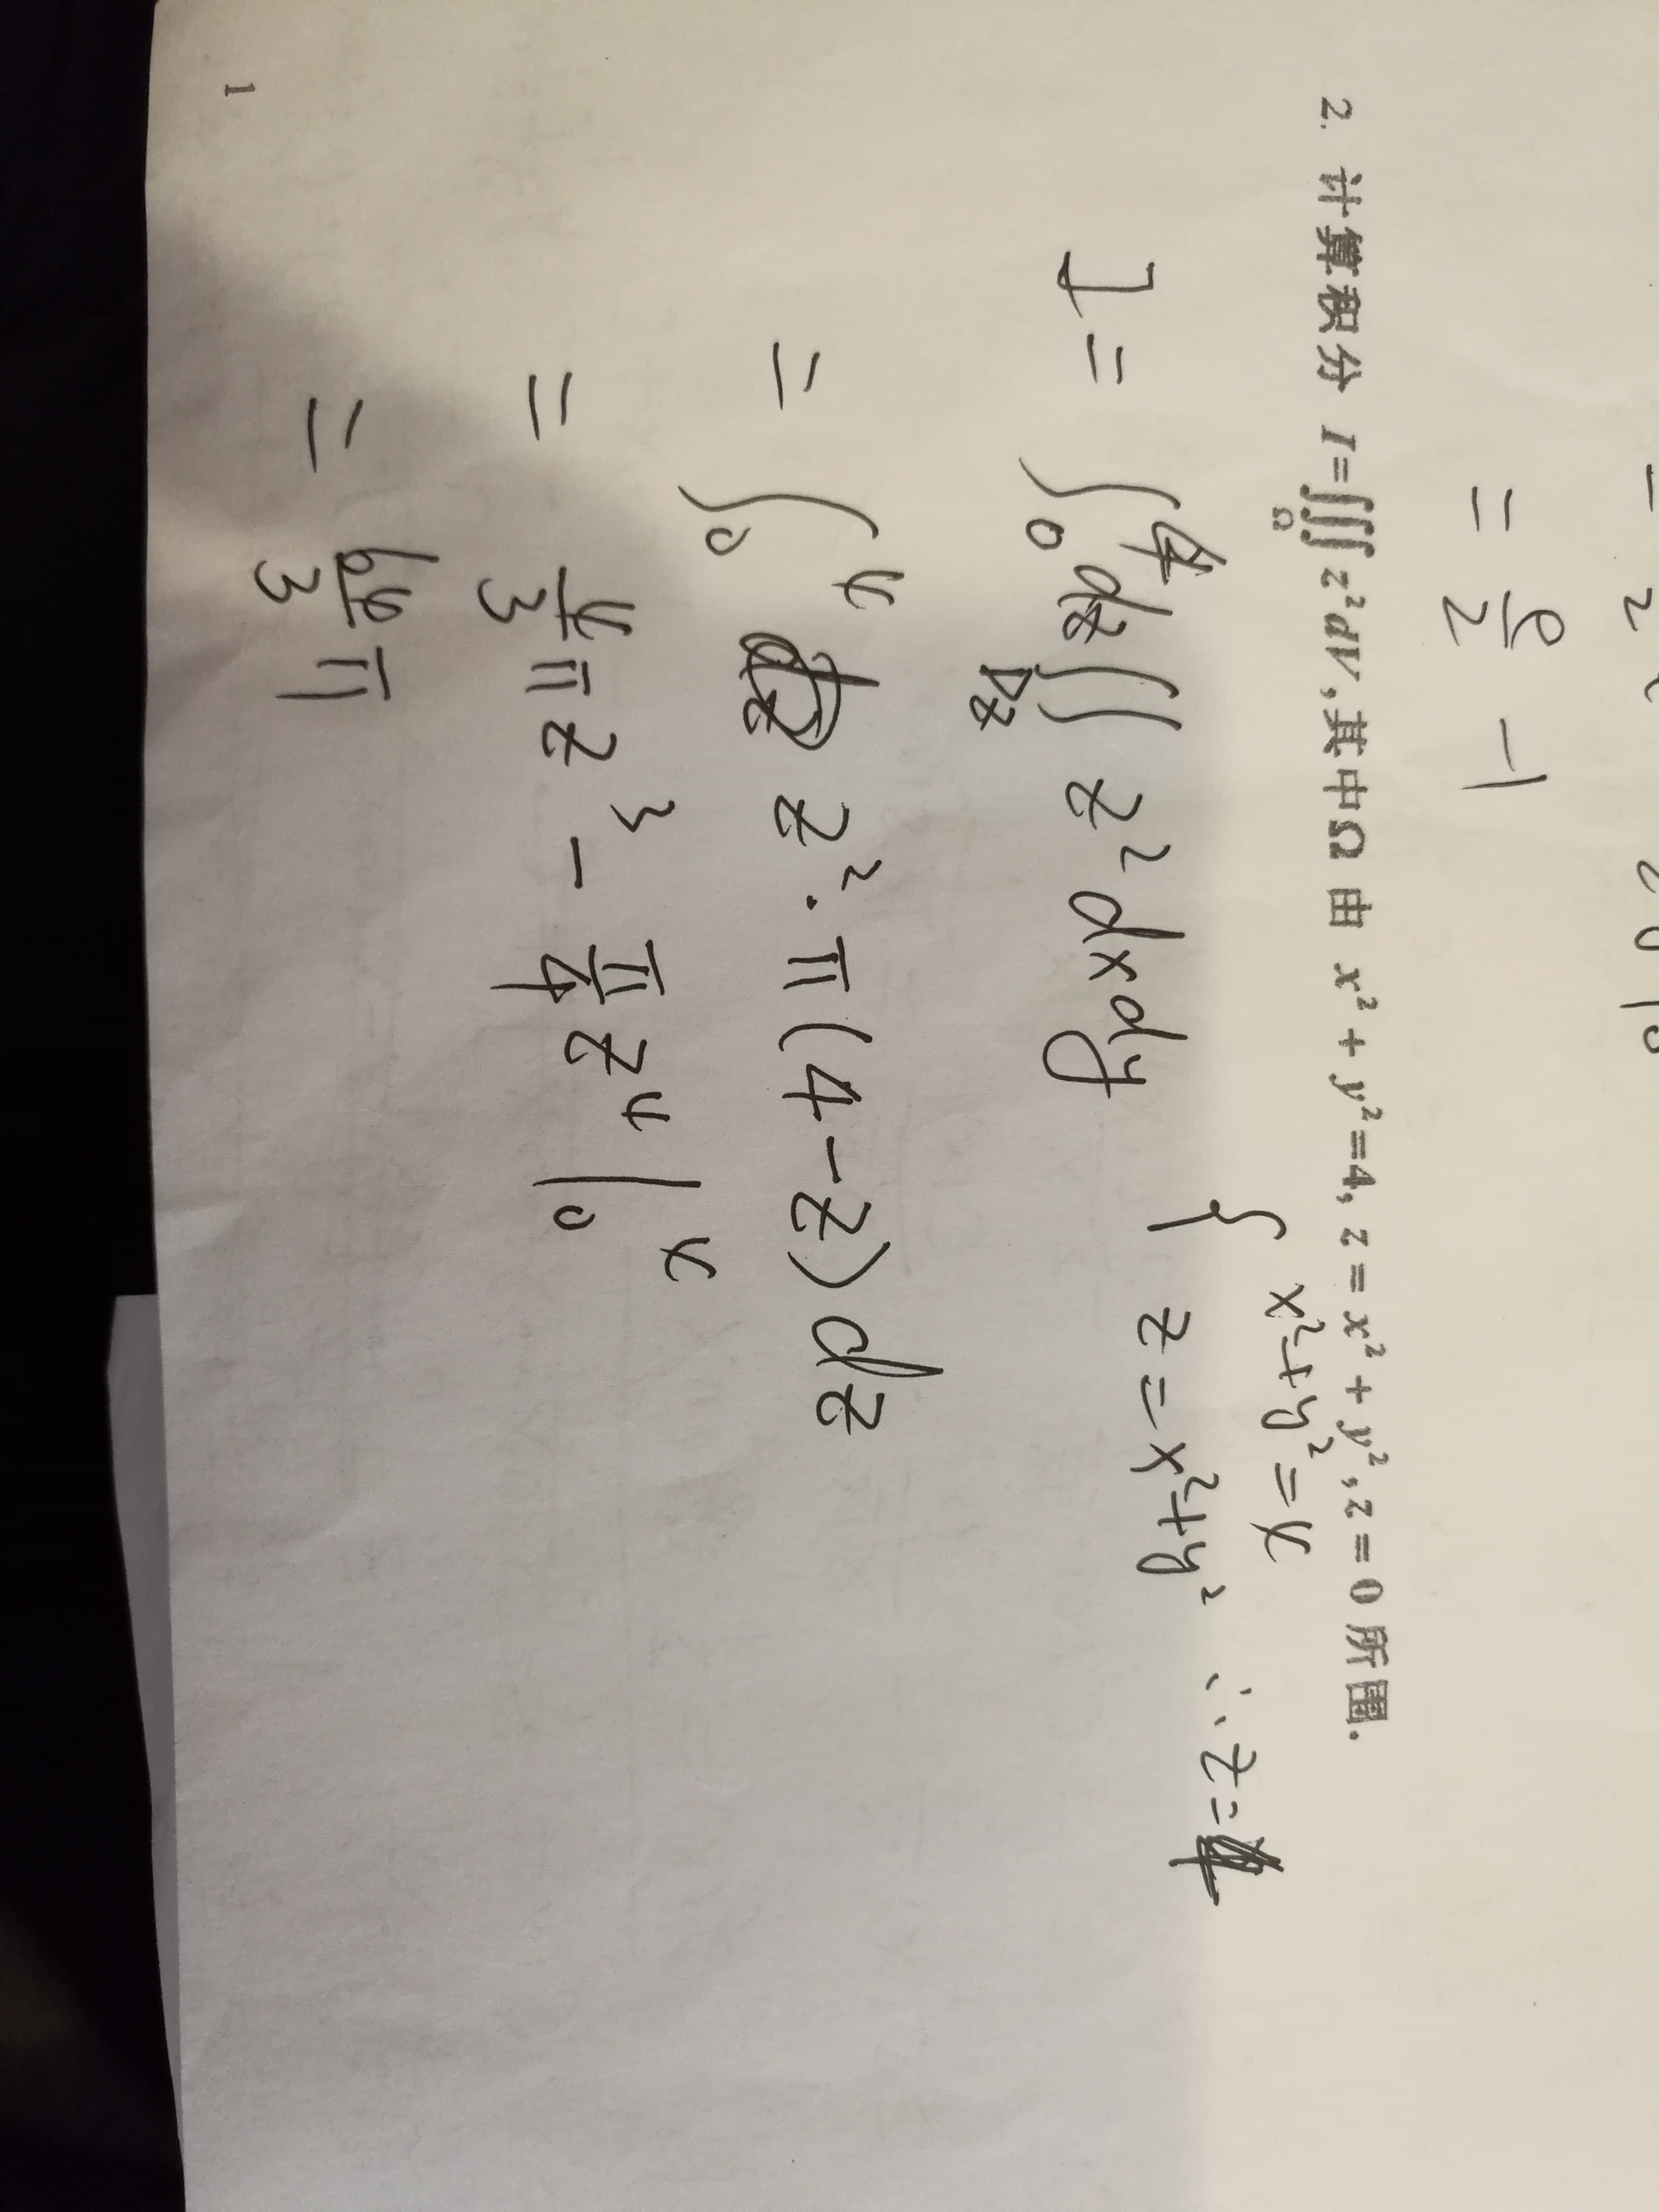 = e/2 - 1
2. 计算积分 I=∭_Ω z²dV,其中Ω 由 x² + y²=4, z = x² + y², z = 0 所围.
{ x²+y²=4
z = x²+y² ∴ z=4
I = ∫₀⁴ dz ∬_Dz z² dxdy
= ∫₀⁴ z²·π(4-z)dz
= 4/3 π z³ - π/4 z⁴ |₀⁴
= 64/3 π
1